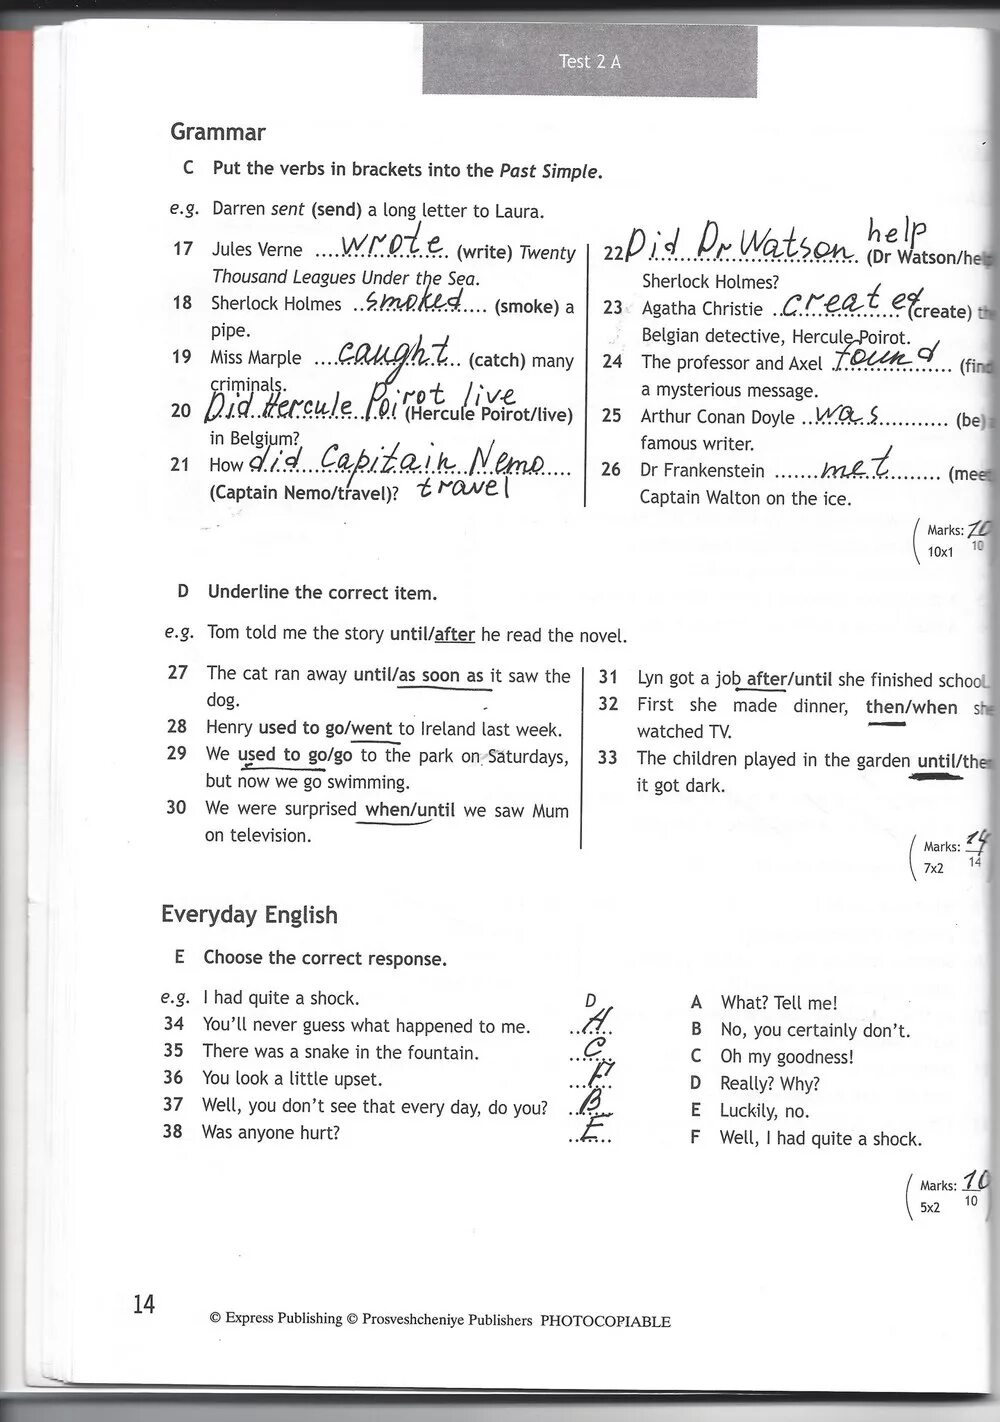 Test 2 A
Grammar
C Put the verbs in brackets into the Past Simple.
e.g. Darren sent (send) a long letter to Laura.
17 Jules Verne ....wrote.... (write) Twenty
Thousand Leagues Under the Sea.
18 Sherlock Holmes ..smoked.... (smoke) a
pipe.
19 Miss Marple ....caught.... (catch) many
criminals.
20 Did Hercule Poirot live (Hercule Poirot/live)
in Belgium?
21 How did Capitain Nemo
(Captain Nemo/travel)? travel
22 Did Dr Watson help (Dr Watson/he
Sherlock Holmes?
23 Agatha Christie ..created (create)
Belgian detective, Hercule Poirot.
24 The professor and Axel ..found.... (find
a mysterious message.
25 Arthur Conan Doyle ..was............ (be)
famous writer.
26 Dr Frankenstein .......met........ (mee
Captain Walton on the ice.
Marks: 10
10x1 10
D Underline the correct item.
e.g. Tom told me the story until/after he read the novel.
27 The cat ran away until/as soon as it saw the
dog.
28 Henry used to go/went to Ireland last week.
29 We used to go/go to the park on Saturdays,
but now we go swimming.
30 We were surprised when/until we saw Mum
on television.
31 Lyn got a job after/until she finished school.
32 First she made dinner, then/when she
watched TV.
33 The children played in the garden until/the
it got dark.
Marks: 14
7x2 14
Everyday English
E Choose the correct response.
e.g. I had quite a shock. D
34 You'll never guess what happened to me. A
35 There was a snake in the fountain. C
36 You look a little upset. F
37 Well, you don't see that every day, do you? B
38 Was anyone hurt? E
A What? Tell me!
B No, you certainly don't.
C Oh my goodness!
D Really? Why?
E Luckily, no.
F Well, I had quite a shock.
Marks: 10
5x2 10
14
© Express Publishing © Prosveshcheniye Publishers PHOTOCOPIABLE